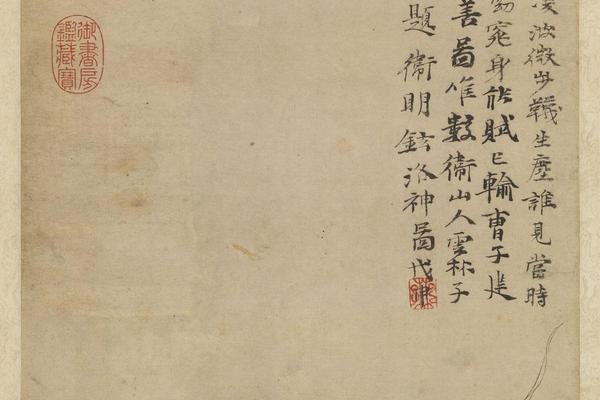 凌波微步韈生塵誰見當時
窈窕身能賦已輸曹子建
善圖唯數衛山人雲林子
題衛明鉉洛神圖戊申
御書房
鑑藏寶